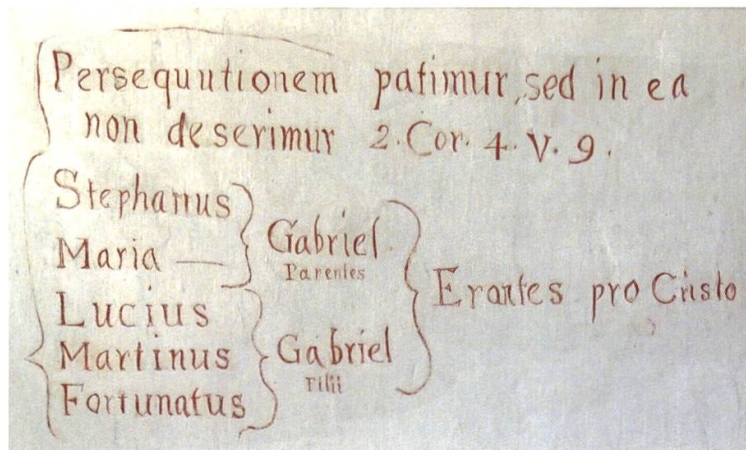 Persequutionem patimur, sed in ea
non deserimur 2. Cor. 4. V. 9.
Stephanus
Maria
Gabriel
Parentes
Lucius
Martinus
Fortunatus
Gabriel
Filii
Erantes pro Cristo